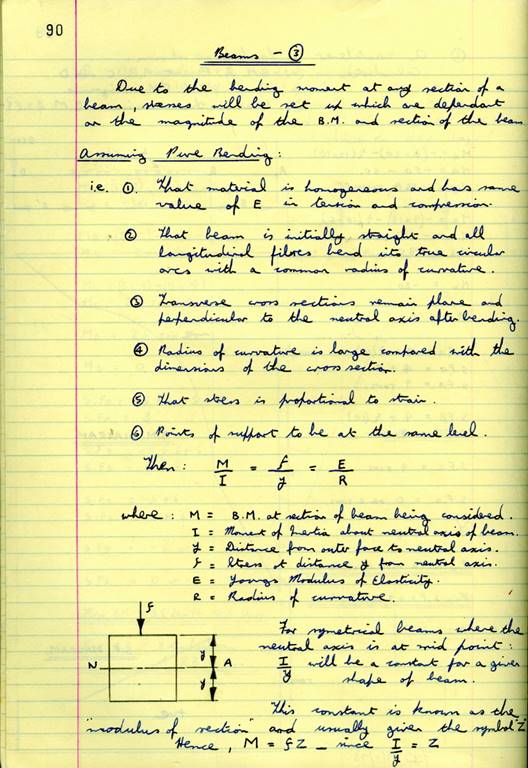 90
Beams - ③
Due to the bending moment at any section of a
beam, stresses will be set up which are dependant
on the magnitude of the B.M. and section of the beam
Assuming Pure Bending:
i.e. ①. That material is homogeneous and has same
value of E in tension and compression.
② That beam is initially straight and all
longitudinal fibres bend into true circular
arcs with a common radius of curvature.
③ Transverse cross sections remain plane and
perpendicular to the neutral axis after bending.
④ Radius of curvature is large compared with the
dimensions of the cross section.
⑤ That stress is proportional to strain.
⑥ Points of support to be at the same level.
Then: M/I = f/y = E/R
where: M = B.M. at section of beam being considered.
I = Moment of Inertia about neutral axis of beam.
y = Distance from outer face to neutral axis.
f = Stress at distance y from neutral axis.
E = Youngs Modulus of Elasticity.
R = Radius of curvature.
f
N A
y
y
For symetrical beams where the
neutral axis is at mid point:
I/y will be a constant for a given
shape of beam.
This constant is known as the
"modulus of section" and usually given the symbol "Z"
Hence, M = fZ - since I/y = Z